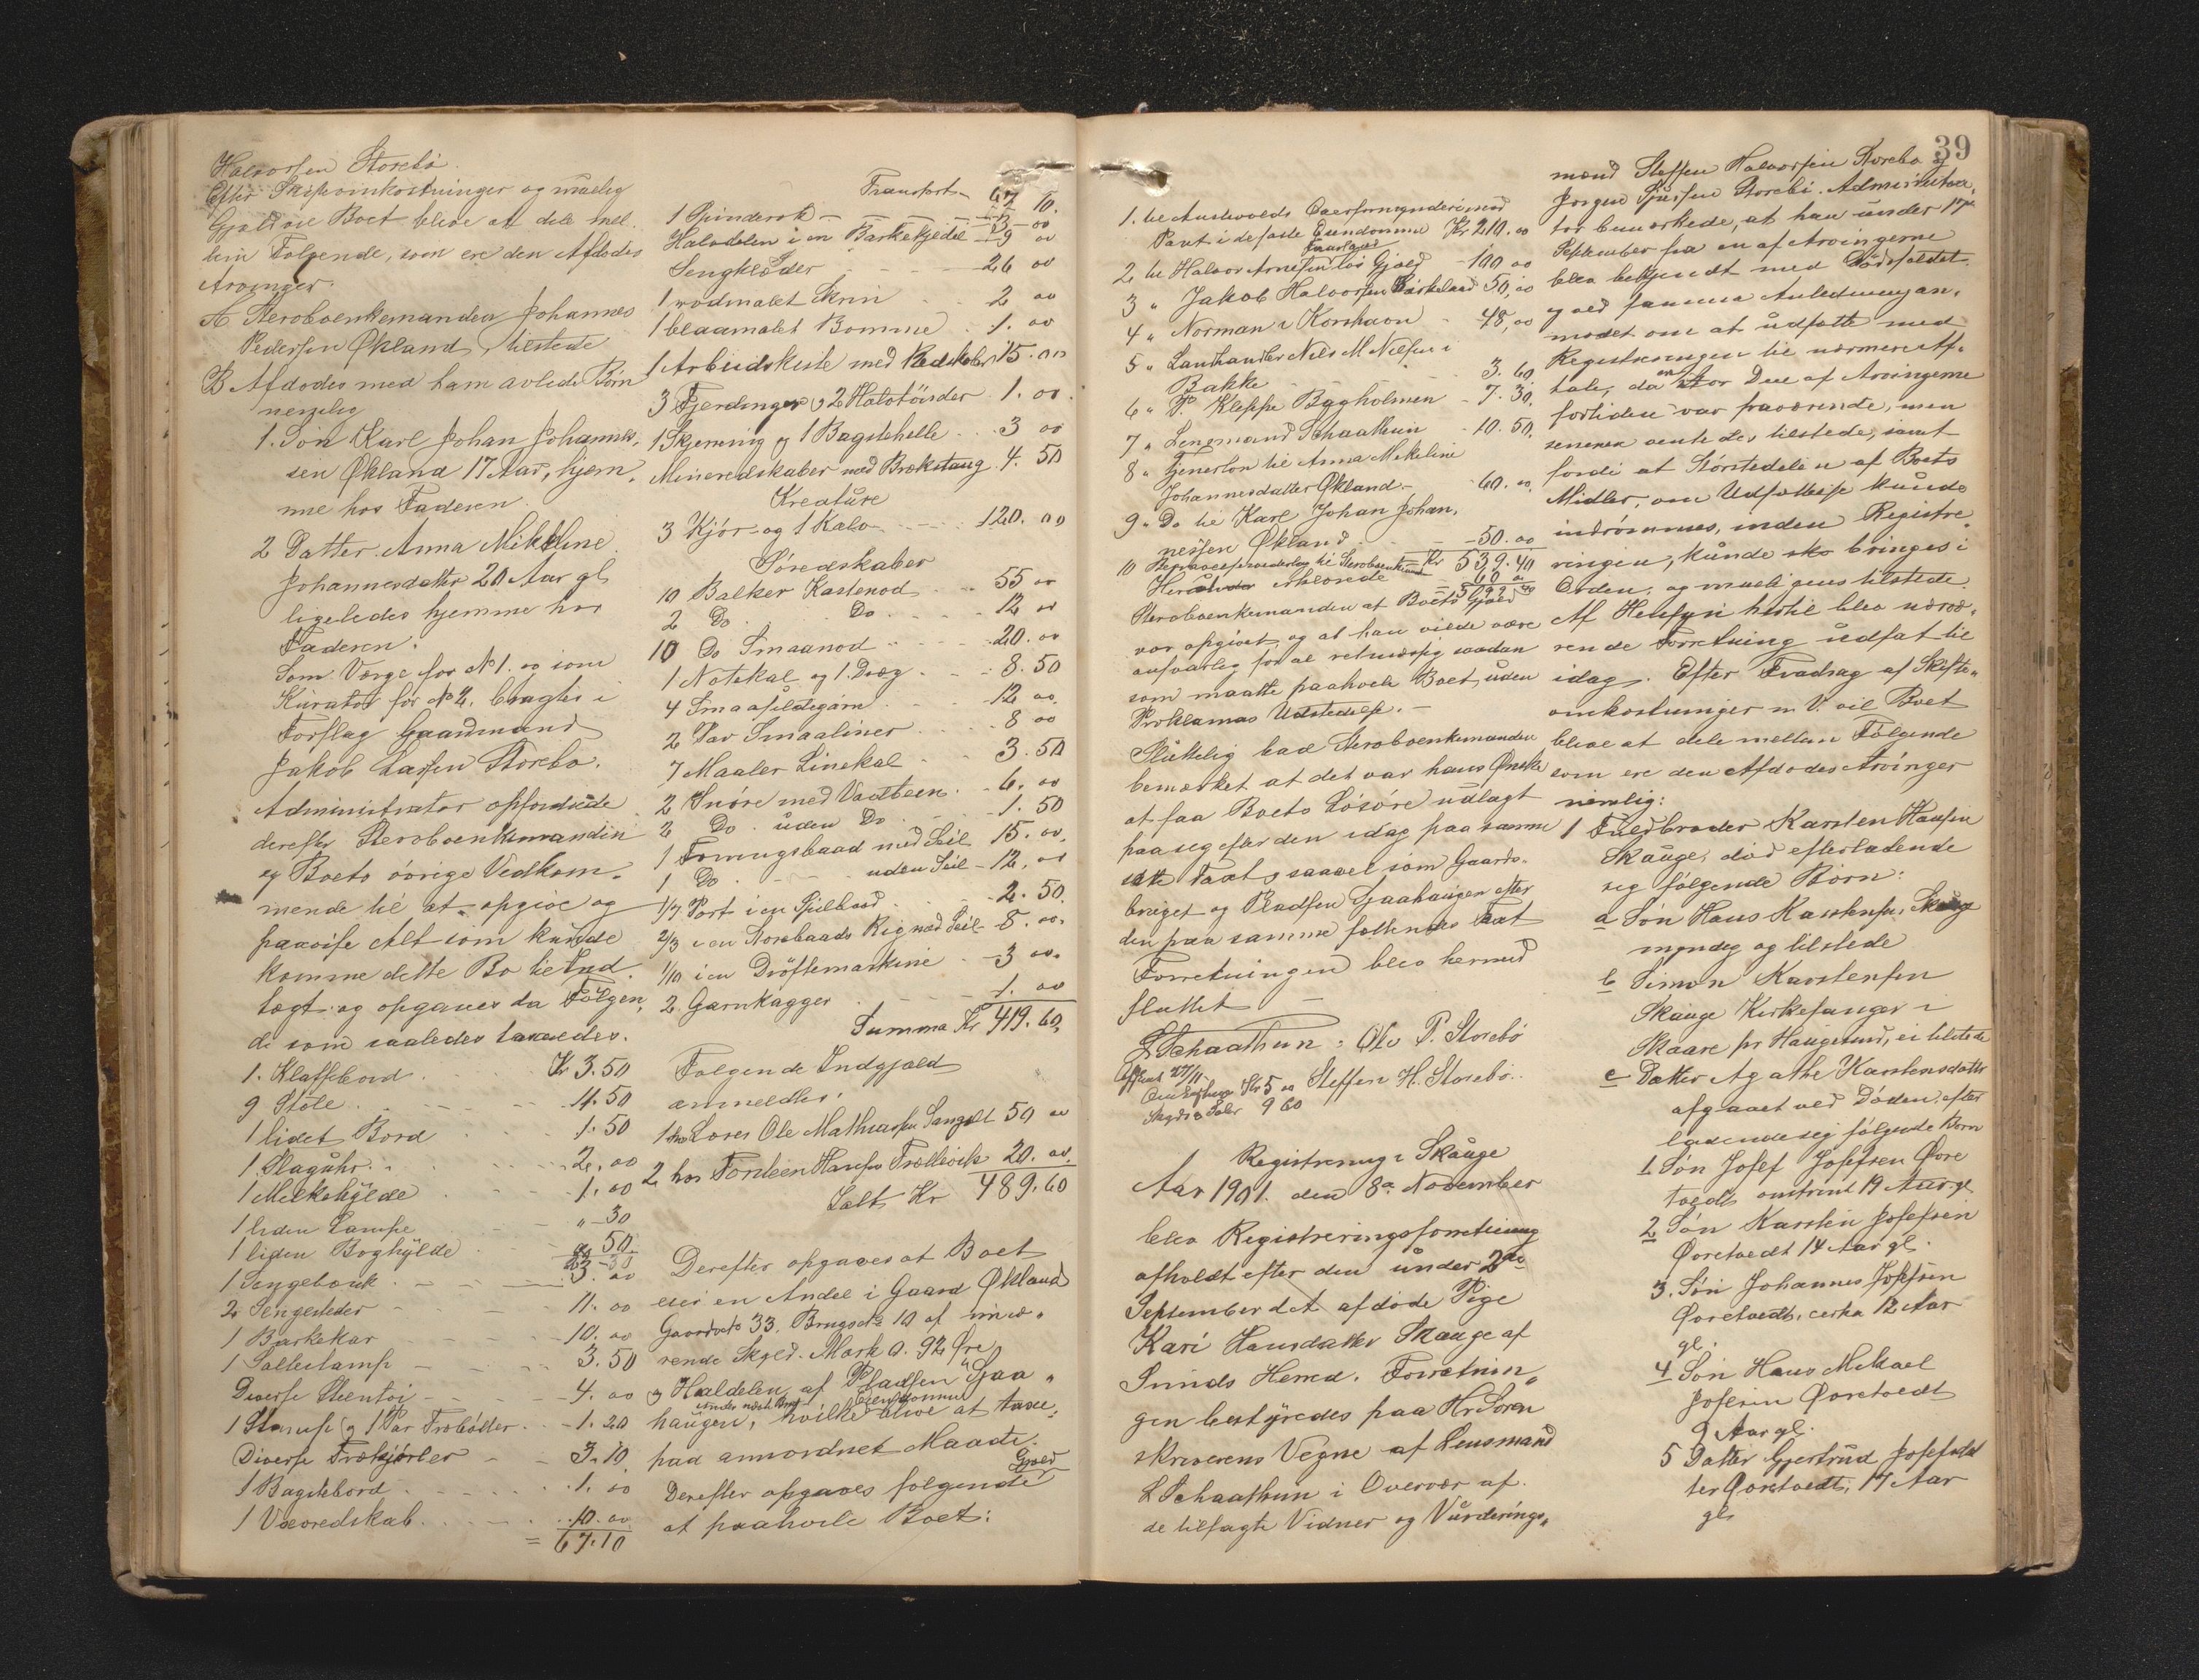 Halvorsen Storebø.
Efter Skifteomkostninger og muelig
Gjæld vil Boet blive at dele mel
lem Følgende, som ere den Afdødes
Arvinger.
A Sterboenkemanden Johannes
Pedersen Økland, tilstede
B Afdødes med ham avlede Børn
nemlig
1. Søn Karl Johan Johannes.
sen Økland 17 Aar, hjem.
me hos Faderen.
2 Datter Anna Mikkline
Johannesdatter 20 Aar gl
ligeledes hjemme hos
Faderen.
Som Værge for N 1. og som
Kurator for N 2. bragtes i
Forslag Gaardmand
Jakob Larsen Storebø.
Administrator opfordrede
derefter Sterboenkemanden
og Boets øvrige Vedkom-
mende til at opgive og
paavise Alt som kunde
komme dette Bo til Ind
tægt og opgaves da Følgen,
de som saaledes taxeredes.
1. Klaffebord Kr 3.50
9 Stole 4.50
1 lidet Bord 1.50
1 Slaguhr 2.00
1 Melkehylde 1.00
1 liden Lampe " 30
1 liden Boghylde " 50
1 Sengebænk 3.00
2 Sengesteder 11.00
1 Barkekar 10.00
1 Sallestamp 3.50
Diverse Steentøi 4.00
1 Stamp og 1 Par Træbøtter 1.20
Diverse Trækjørler 3.10
1 Bagstebord 1.00
1 Vævredskab 10.00
= 67.10
Transport 67 10.
1 Spinderok
Halvdelen i en Barkekjedel 9 00
Sengklæder 26 00
1 rødmalet Skrin 2 00
1 blaamalet Bomme 1.00
1 Arbeidskiste med Redskaber 15.00
3 Fjerdinger og 2 Halvtønder 1.00
1 Skjerning og 1 Bagstehelle 3 00
Mineredskaber med Brækstang 4.50
Kreature
3 Kjør og 1 Kalv 120.00
Søredskaber
10 Balker Kastenod 55 00
2 Do Do 12 00
10 Do Smaanod 20.00
1 Notekal og 1 Dræg 8.50
4 Smaasildegarn 12 00
2 Par Smaaliner 8 00
7 Maaler Linekal 3.50
2 Snøre med Vadbeen 6.00
2 Do uden Do 1.50
1 Færingsbaad med Seil 15.00
1 Do uden Seil 12.00
1/7 Part i en Spilbaad 2.50
2/3 i en Storebaads Rig med Seil 8.00
1/10 i en Drøftemaskine 3 00
2 Garnkagger 1.00
Summa Kr 419.60
Følgende Indgjæld
anmeldtes:
1 hos Lærer Ole Mathiassen Langelt 50 00
2 hos Torsteen Hansen Trællevik 20.00
Ialt Kr 489.60
Derefter opgaves at Boet
eier en Andel i Gaard Økland
Gaards No 33, Brugs No 10 af inne-
rende Skyld-Mark 0.92 Øre
og Haldelen af Pladsen Sjaa-
haugen, hvilke Eiendomme blive at taxe-
under næste Ting
paa anordnet Maade.
Derefter opgaves følgende Gjæld
at paahvile Boet:
39
1. til Austevolds Overformynderi mod
Pant i de faste Eiendomme Kr 210.00
2 til Halvor Arnesen løs Gjæld 100 00
3 " Jakob Halvorsen Birkeland 50,00
4 " Norman i Korshavn 48,00
5 " Landhandler Nils M Nilsen i
Bakke 3.60
6 " P. Kleppe Bagholmen 7.30
7 " Lensmand Schaathun 10.50
8 " Tjenerløn til Anna Mikeline
Johannesdatter Økland 60.00
9 " Do til Karl Johan Johan,
nessen Økland 50.00
Kr 539.40
10 Begravelsesomkostning til Sterboenkemand 60 00
599.40
Herefter erklærede
Sterboenkemanden at Boets Gjæld
var opgivet og at han vilde være
ansvarlig for al retmæssig saadan
som maatte paahvile Boet, uden
Proklamas Udstedelse.
Sluttelig bad Sterboenkemanden
bemærket at det var hans Ønske
at faa Boets Løsøre udlagt
paa seg efter den idag paa samme
satte Taxt, saavel som Gaards-
bruget og Pladsen Sjaahaugen efter
den paa samme sættendes Taxt
Forretningen blev hermed
sluttet
L Schaathun : Ole P. Storebø
Steffen H. Storebø
Afsendt 27/11
Kr 5 00
9 60
Registrering i Skauge
Aar 1901. den 8de November
blev Registreringsforretning
afholdt efter den under 2den
September d.A. afdøde Pige
Kari Hansdatter Skauge af
Sunds Herred. Forretnin-
gen bestyredes paa Hr Soren
skriverens Vegne af Lensmand
L Schaathun i Overvær af
de tilsagte Vidner og Vurderings-
mænd Steffen Halvorsen Storebø og
Jørgen Sjursen Storebø. Administra-
tor bemærkede, at han under 17de
September fra en af Arvingerne
blev bekjendt med Dødsfaldet
og ved samme Anledning an-
modet om at udsætte med
Registreringen til nærmere Af-
tale, da en stor Deel af Arvingerne
fortiden var fraværende, men
senere ventedes tilstede, samt
fordi at Størstedelen af Boets
Midler, om Udsættelse kunde
indrømmes, inden Registre-
ringen, kunde bringes i
Orden, og mueligens tilstede
Af Hensyn hertil blev nærvæ-
rende Forretning udsat til
idag. Efter Fradrag af Skifte-
omkostninger m V. vil Boet
blive at dele mellem Følgende
som ere den Afdødes Arvinger
nemlig:
1 Fuldbroder Karsten Hansen
Skauge, død efterladende
seg følgende Børn:
a Søn Hans Karstensen Skauge
myndig og tilstede
b Simon Karstensen
Skauge Kirkesanger i
Skaare pr Haugesund, ei tilstede
c Datter Agathe Karstensdatter
afgaaet ved Døden, efter
ladende seg følgende Børn
1 Søn Josef Josefsen Øvre
tvedt omtrent 19 Aar gl
2 Søn Karsten Josefsen
Øvretvedt 14 Aar gl.
3. Søn Johannes Josefsen
Øvretvedt, cirka 12 Aar
gl.
4 Søn Hans Mikael
Josefsen Øvretvedt
9 Aar gl.
5 Datter Gjertrud Josefsdat
ter Øvretvedt, 17 Aar
gl.